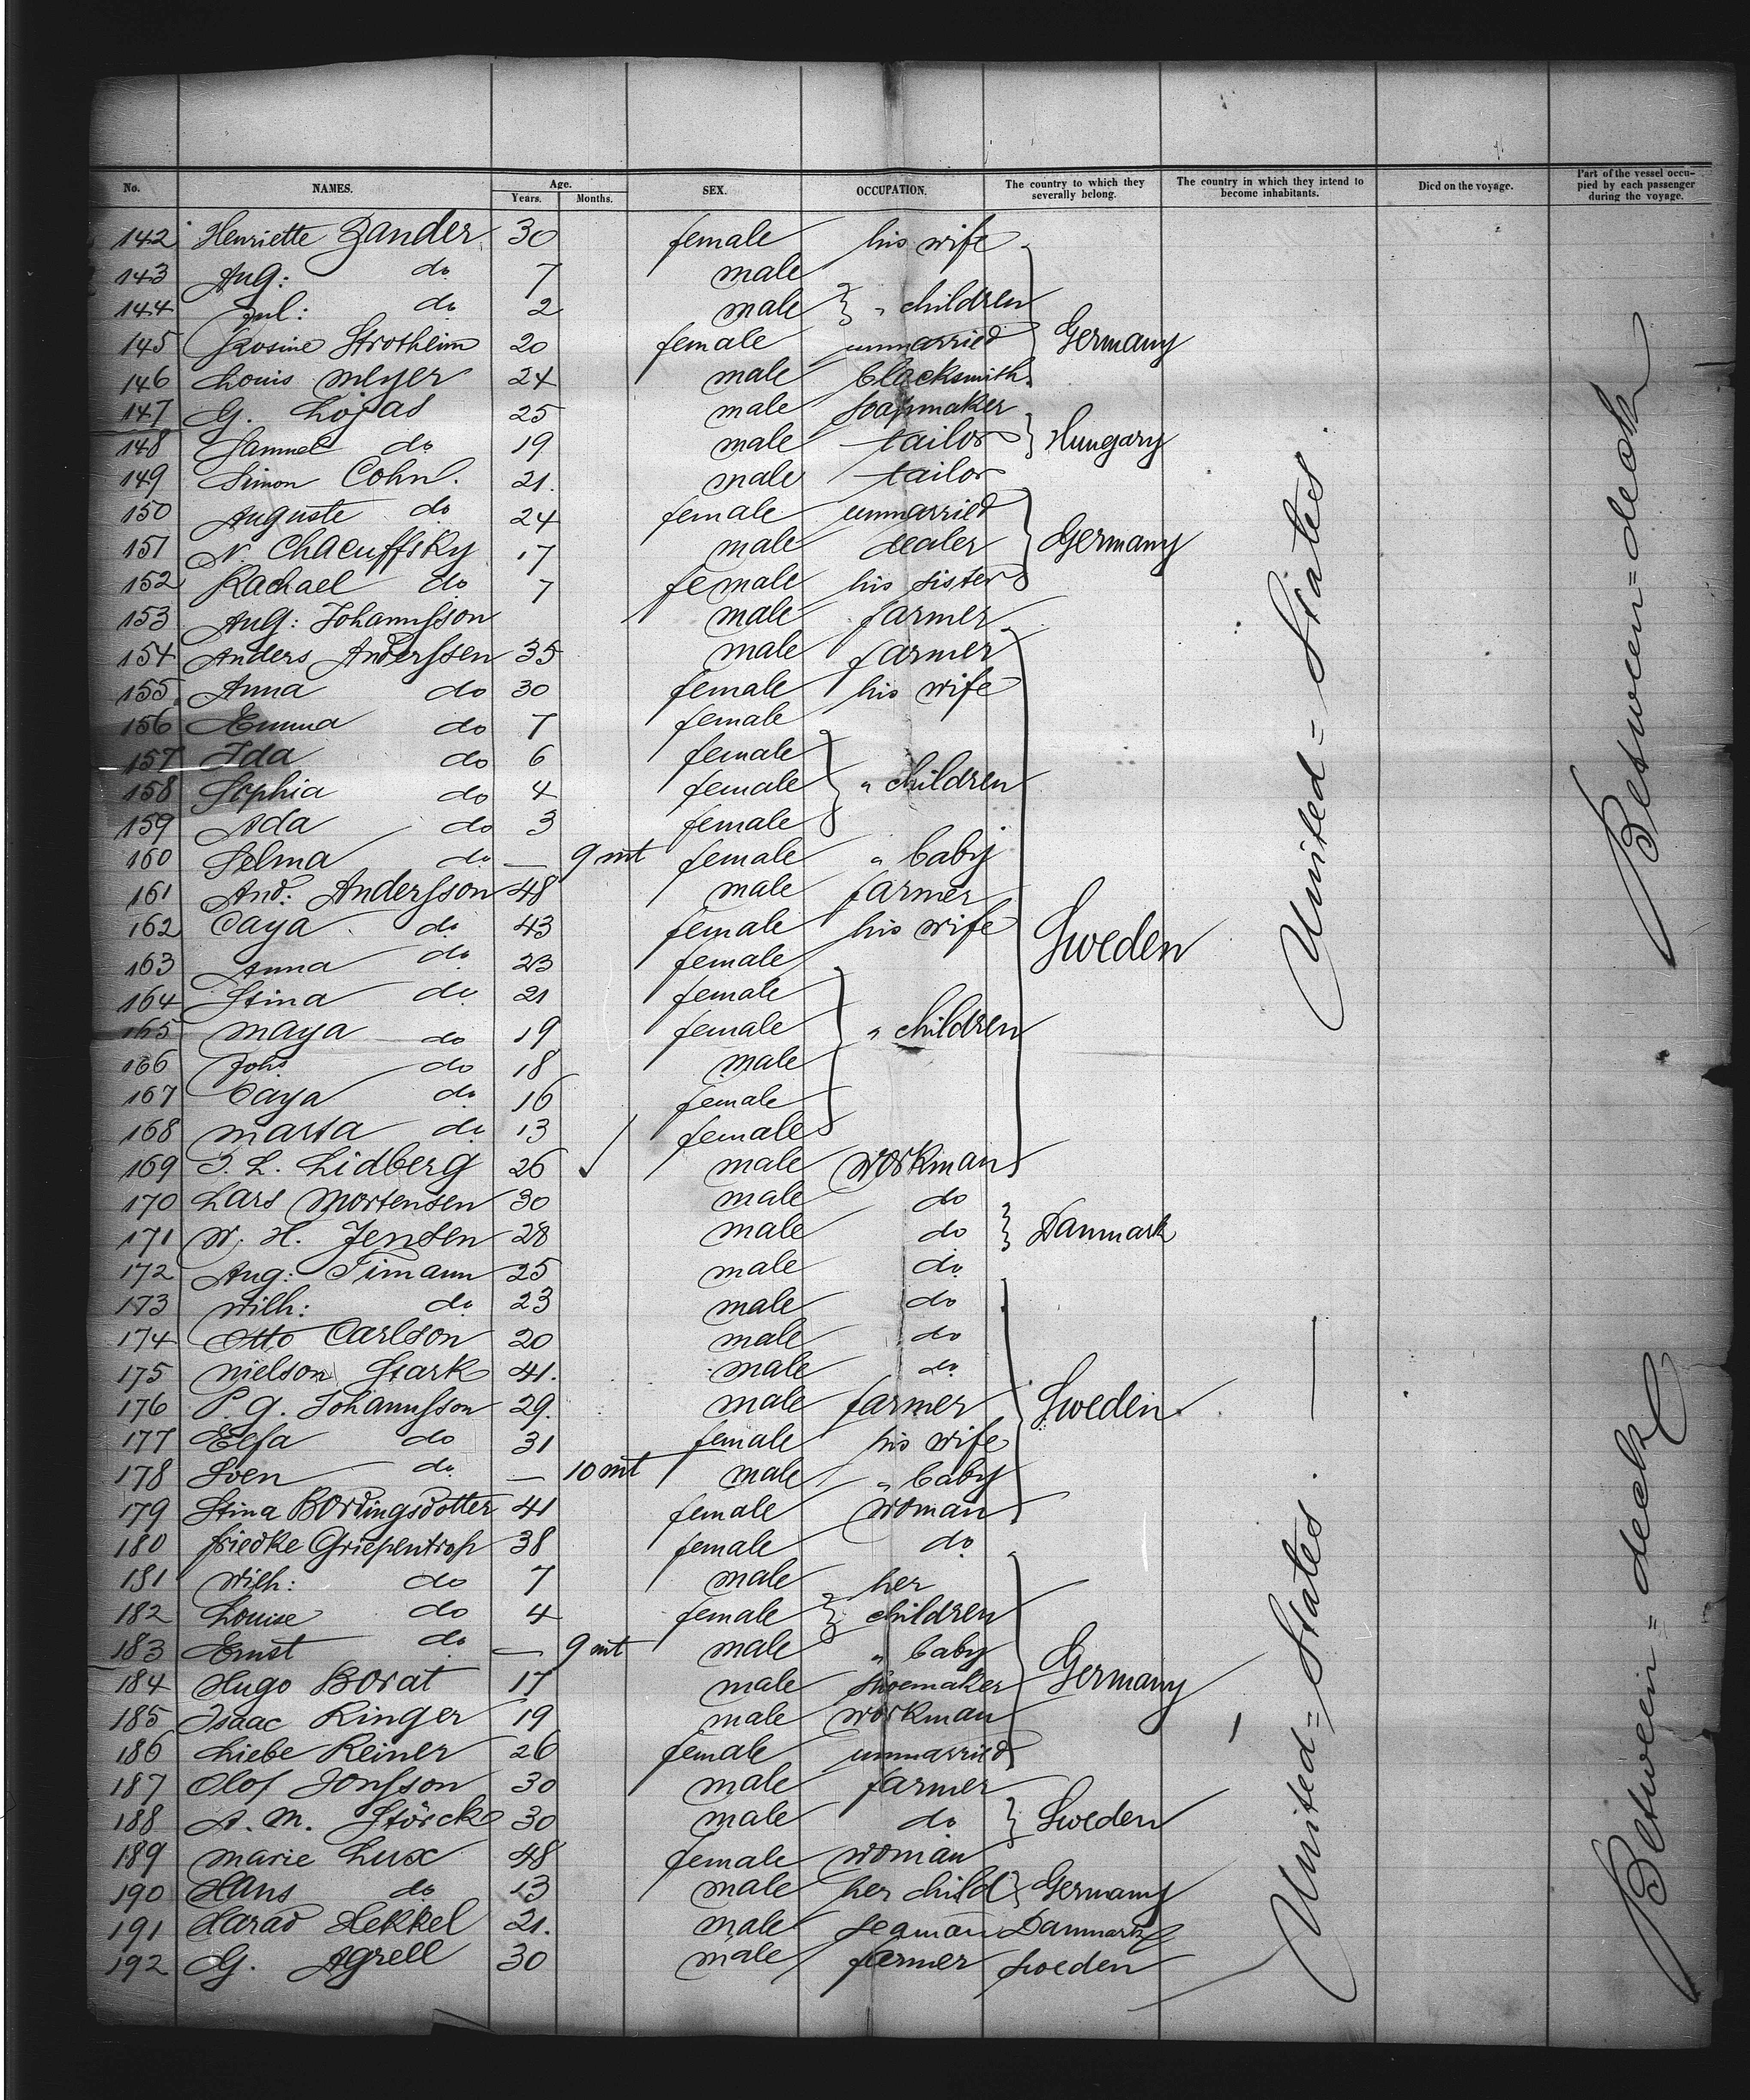 No. NAMES. Age. Years. Months. SEX. OCCUPATION. The country to which they severally belong. The country in which they intend to become inhabitants. Died on the voyage. Part of the vessel occupied by each passenger during the voyage.
142 Henriette Zander 30 female his wife
143 Aug: do 7 male
144 Jul: do 2 male } " children
145 Rosine Strotheim 20 female unmarried } Germany
146 Louis Meyer 24 male blacksmith
147 G. Lojas 25 male soapmaker
148 Samuel do 19 male tailor } Hungary
149 Simon Cohn. 21. male tailor
150 Auguste do 24 female unmarried
151 N Chacuffsky 17 male dealer } Germany
152 Rachael do 7 female his sister
153 Aug: Johannsson male farmer
154 Anders Anderssen 35 male farmer
155 Anna do 30 female his wife
156 Emma do 7 female
157 Ida do 6 female
158 Sophia do 4 female } " children
159 Ada do 3 female
160 Selma do — 9 mt female " baby
161 And: Andersson 48 male farmer
162 Caya do 43 female his wife } Sweden
163 Anna do 23 female
164 Stina do 21 female
165 Maya do 19 female } " children
166 Joh: do 18 male
167 Caya do 16 female
168 Marta do 13 female
169 J. L. Lidberg 26 male workman
170 Lars Mortensen 30 male do
171 W. H. Jensen 28 male do } Danmark
172 Aug: Timann 25 male do
173 Wilh: do 23 male do
174 Otto Carlson 20 male do
175 Nielson Stark 41. male do
176 P. G. Johannsson 29. male farmer } Sweden
177 Elsa do 31 female his wife
178 Sven do — 10 mt male " baby
179 Stina Bordingsdotter 41 female woman
180 Friedke Griepentrop 38 female do
181 Wilh: do 7 male her
182 Louise do 4 female } children
183 Ernst do — 9 mt male " baby
184 Hugo Borat 17 male shoemaker } Germany
185 Isaac Ringer 19 male workman
186 Liebe Reiner 26 female unmarried
187 Olof Jonsson 30 male farmer
188 A. M. Störck 30 male do } Sweden
189 Marie Lux 48 female woman
190 Hans do 13 male her child } Germany
191 Harad Hekkel 21. male seaman Danmark
192 G. Agrell 30 male farmer Sweden
United = States
United = States
Between = deck
Between = deck